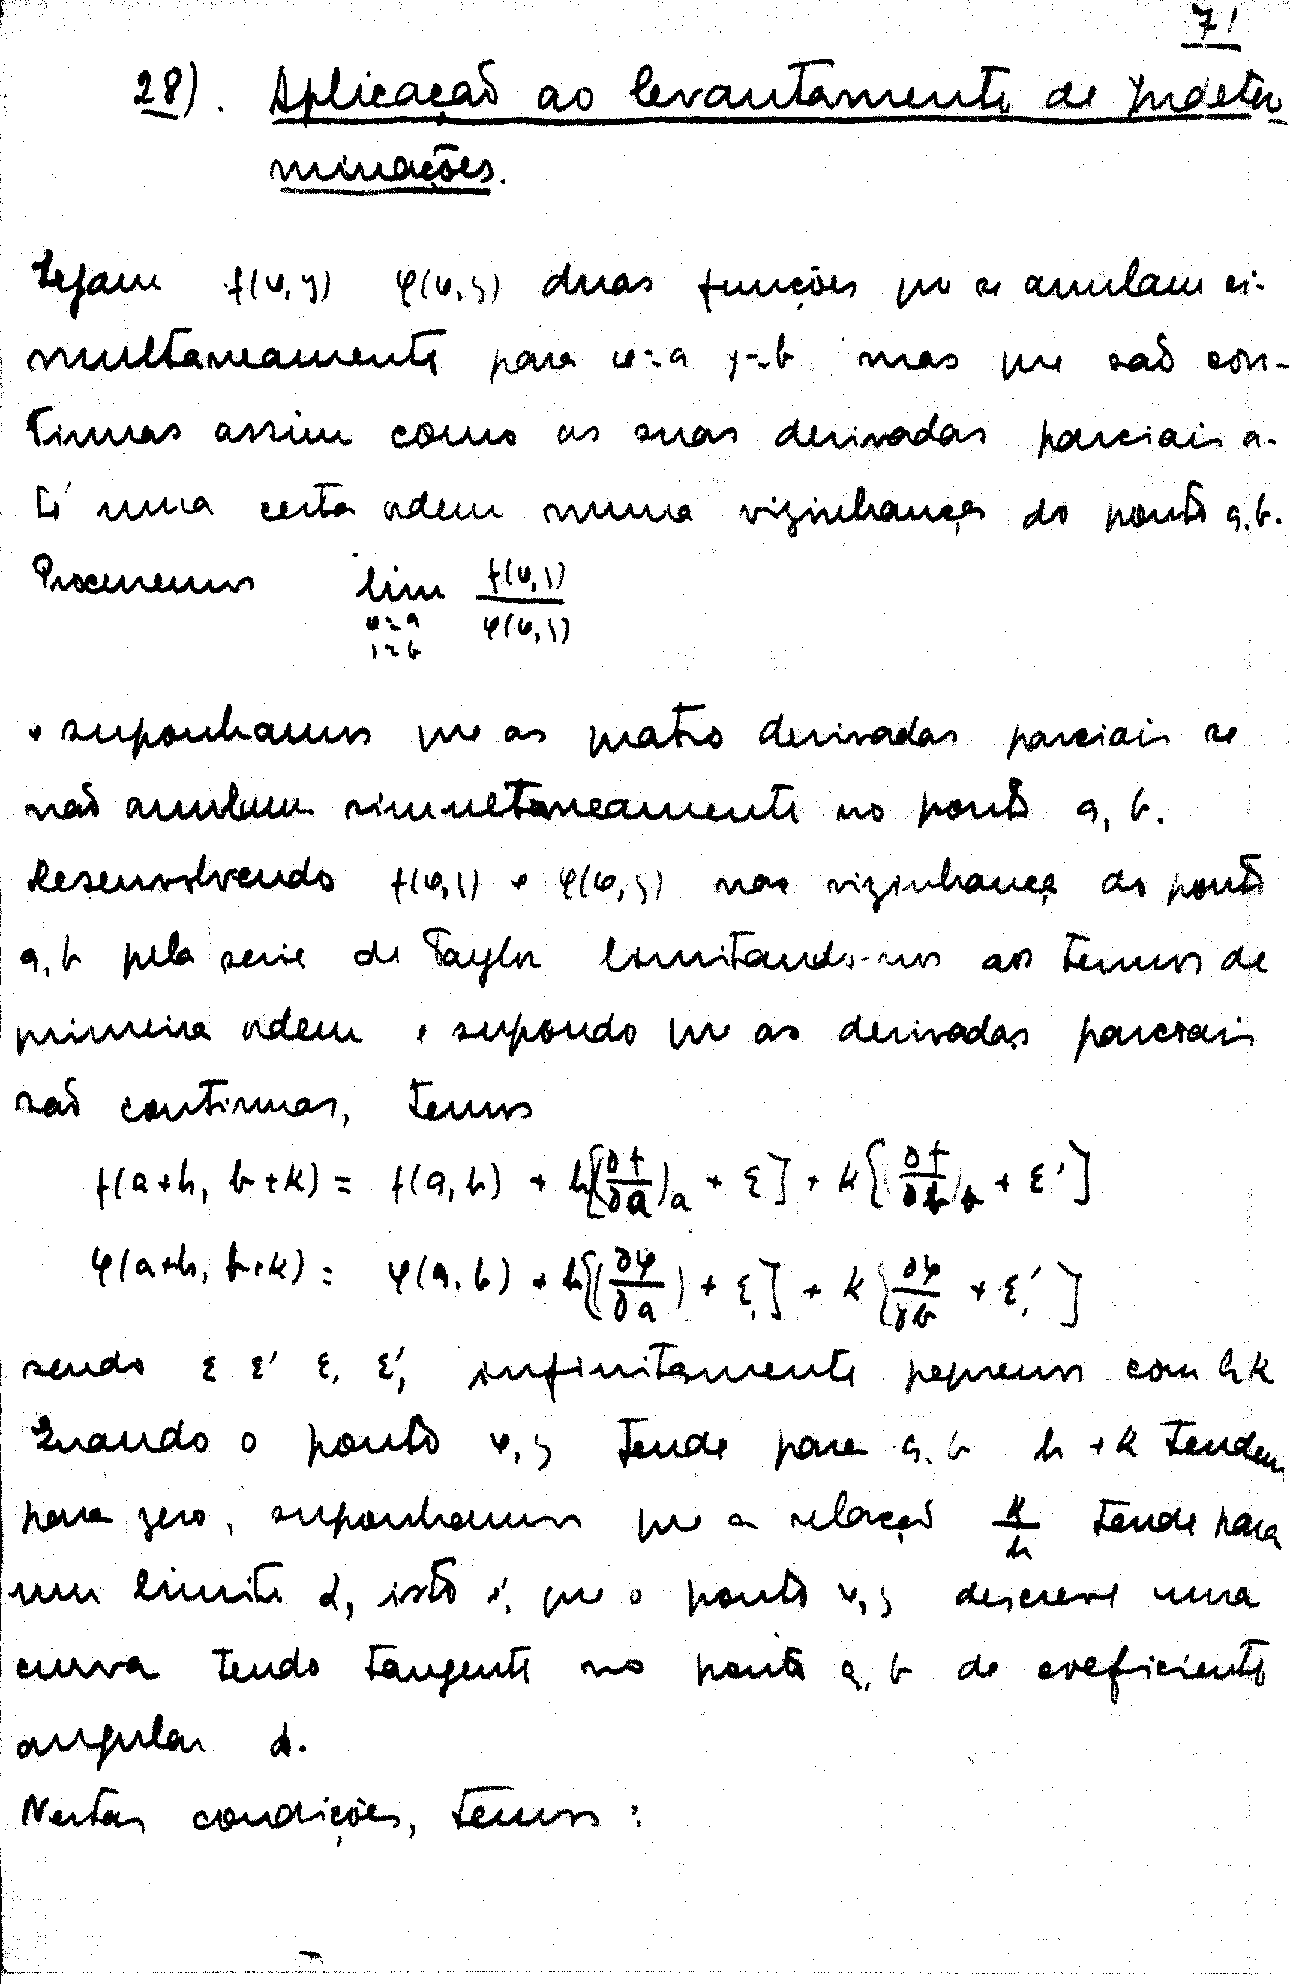 71
28). Aplicação ao levantamento de Indeter
minações.
Sejam f(x,y) φ(x,y) duas funções que se anulam si-
multaneamente para x=a y=b mas que são con-
tinuas assim como as suas derivadas parciais a-
té uma certa ordem numa vizinhança do ponto a,b.
Procuremos lim f(x,y)/φ(x,y)
x=a
y=b
e suponhamos que as quatro derivadas parciais se
não anulam simultaneamente no ponto a, b.
Desenvolvendo f(x,y) e φ(x,y) na vizinhança do ponto
a,b pela serie de Taylor limitando-nos aos termos de
primeira ordem e supondo que as derivadas parciais
são continuas, temos
f(a+h, b+k) = f(a,b) + h[(∂f/∂a)a + ε] + k[(∂f/∂b)b + ε']
φ(a+h, b+k) = φ(a,b) + h[(∂φ/∂a) + ε₁] + k[∂φ/∂b + ε₁']
sendo ε ε' ε₁ ε₁' infinitamente pequenos com h,k
Quando o ponto x,y tende para a,b h e k tendem
para zero, suponhamos que a relação k/h tende para
um limite α, isto é, que o ponto x,y descreve uma
curva tendo tangente no ponto a,b de coeficiente
angular α.
Nestas condições, temos: